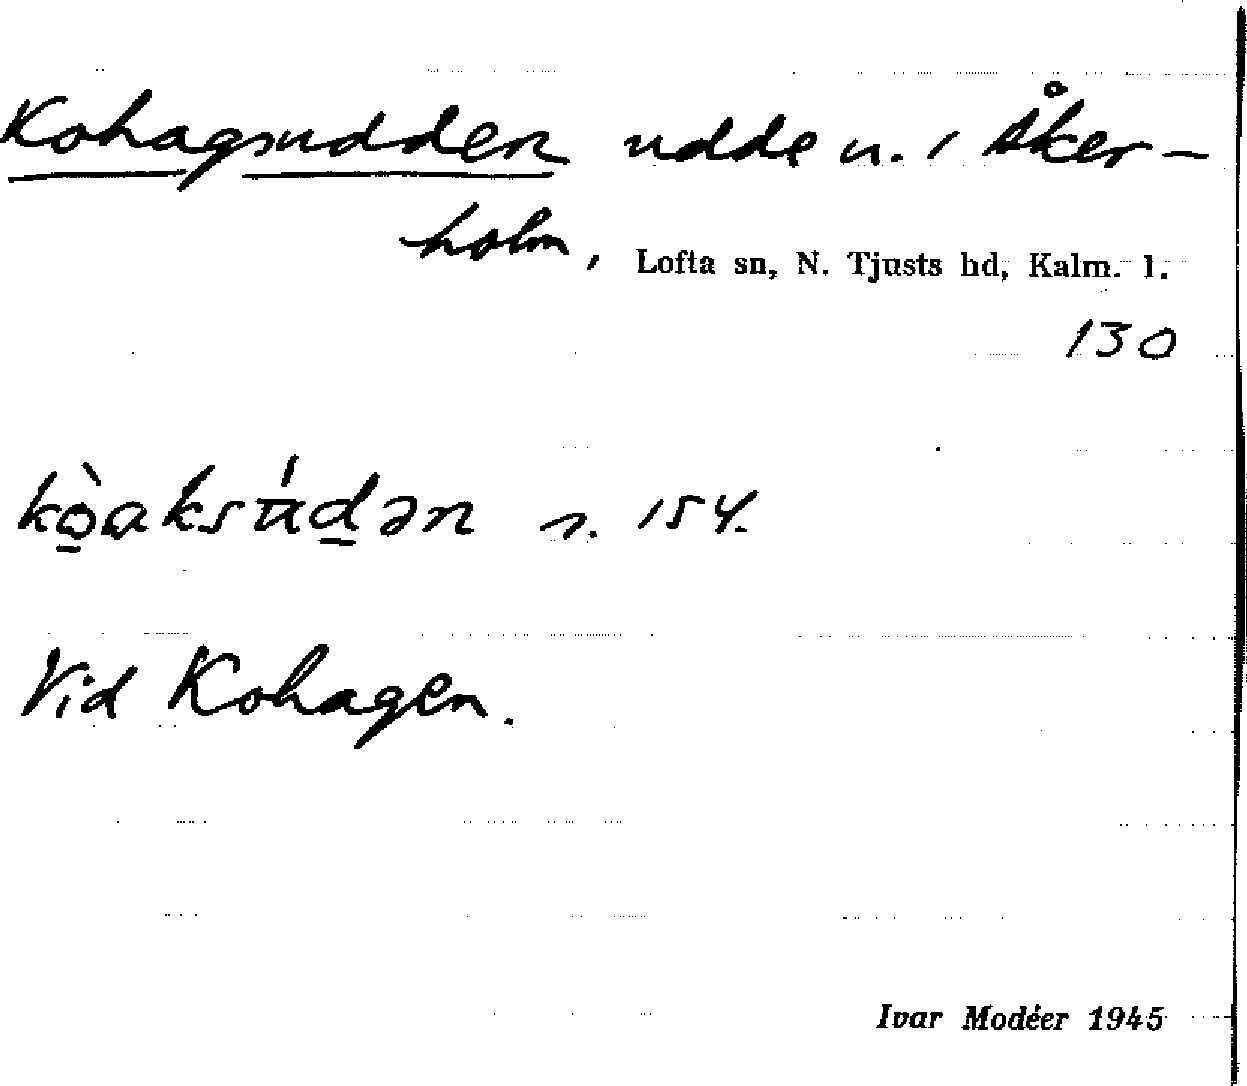 Kohagsudden udde n. i Åker-
holm, Lofta sn, N. Tjusts hd, Kalm. l.
130
kò̠aksúd̠ən s. 154.
Vid Kohagen.
Ivar Modéer 1945